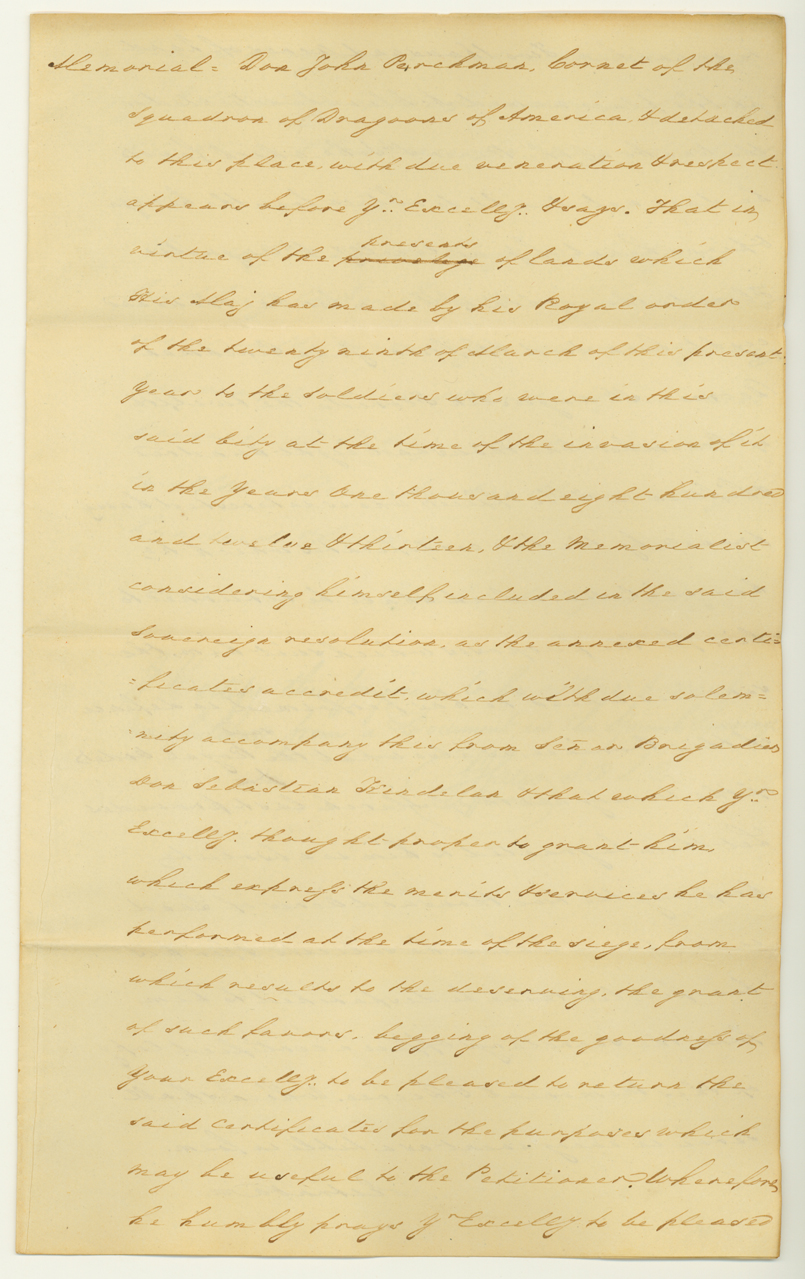 Memorial = Don John Perchman, Cornet of the
squadron of Dragoons of America, & detached
to this place, with due veneration & respect
appears before Yr. Excelly. & says. That in
presents
virtue of the privelege of lands which
His Maj has made by his Royal order
of the twenty ninth of March of this present
Year to the soldiers who were in this
said City at the time of the invasion of it
in the Years One thousand eight hundred
and twelve & thirteen, & the Memorialist
considering himself included in the said
Sovereign resolution, as the annexed certi=
=ficates accredit, which with due solem=
nity accompany this from Señor Brigadier
Don Sebastian Kindelan & that which Yr.
Excelly. thought proper to grant him,
which express the merits & services he has
performed at the time of the siege, from
which results to the deserving, the grant
of such favors, begging of the goodness of
Your Excelly. to be pleased to return the
said certificates for the purposes which
may be useful to the Petitioner. Wherefore
he humbly prays Yr Excelly to be pleased